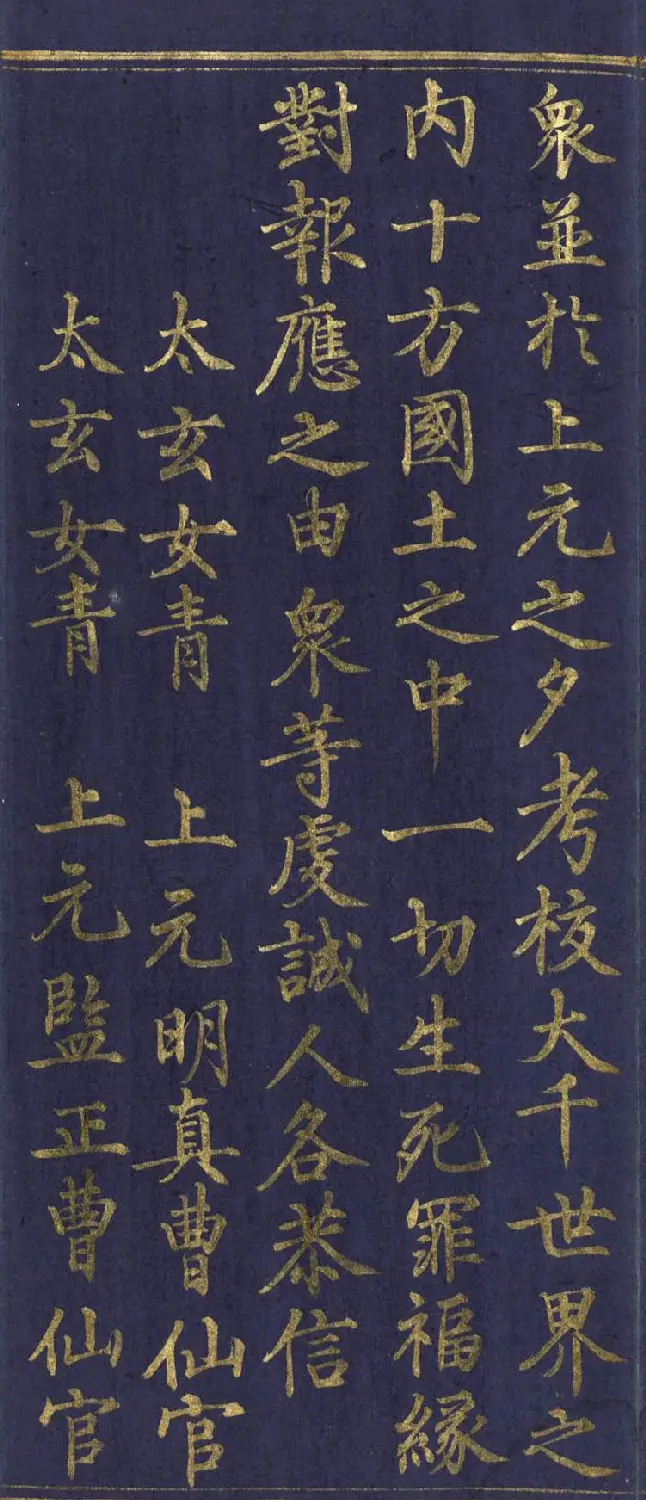 衆並於上元之夕考校大千世界之
内十方國土之中一切生死罪福縁
對報應之由衆等虔誠人各恭信
太玄女青 上元明真曹仙官
太玄女青 上元監正曹仙官